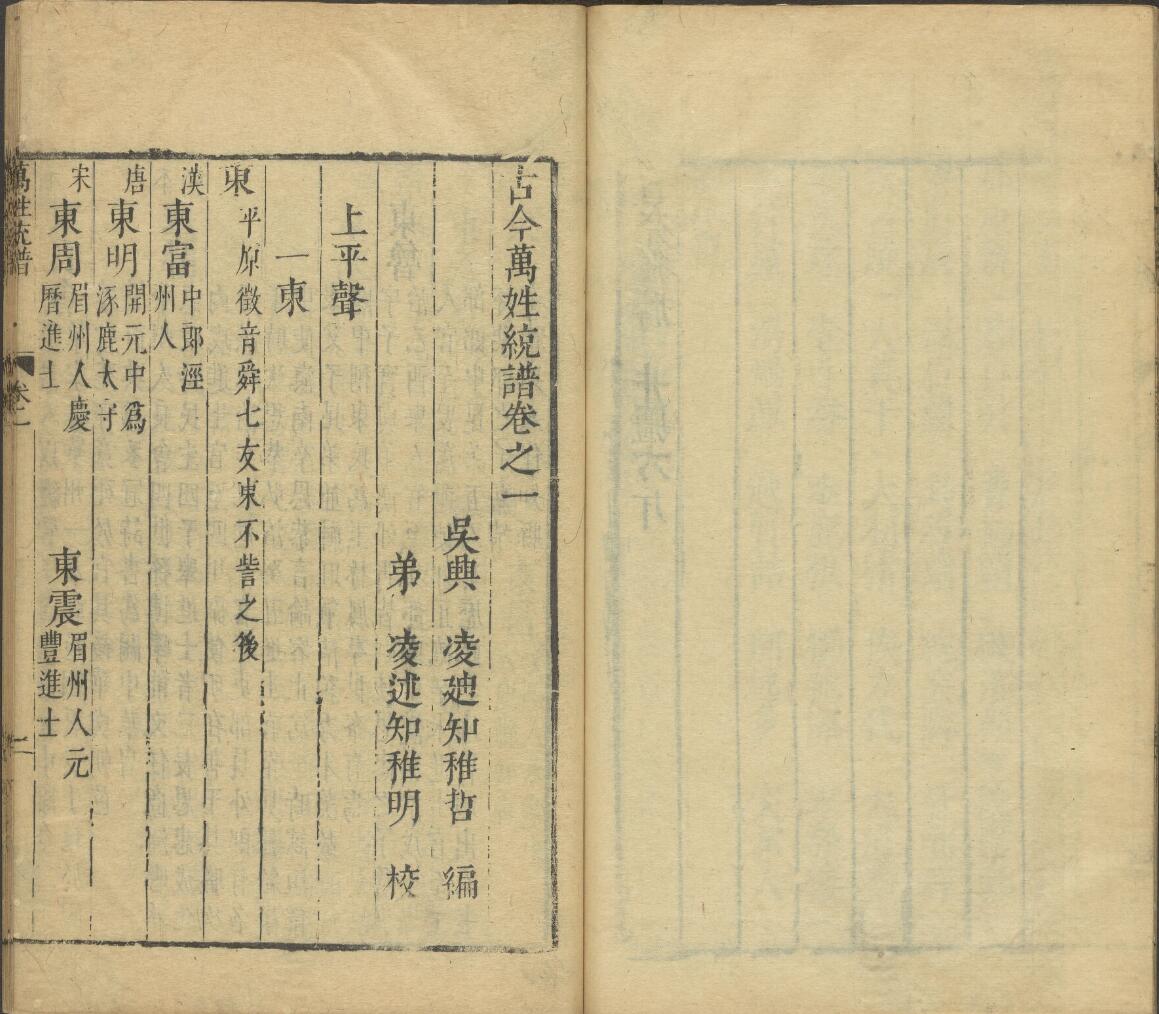 古今萬姓統譜卷之一
吳興 凌迪知稚哲 編
弟 凌述知稚明 校
上平聲
一東
東 平原徵音舜七友東不訾之後
漢 東富 中郎涇
州人
唐 東明 開元中爲
涿鹿太守
宋 東周 眉州人慶
曆進士
東震 眉州人元
豐進士
萬姓統譜 卷一 一